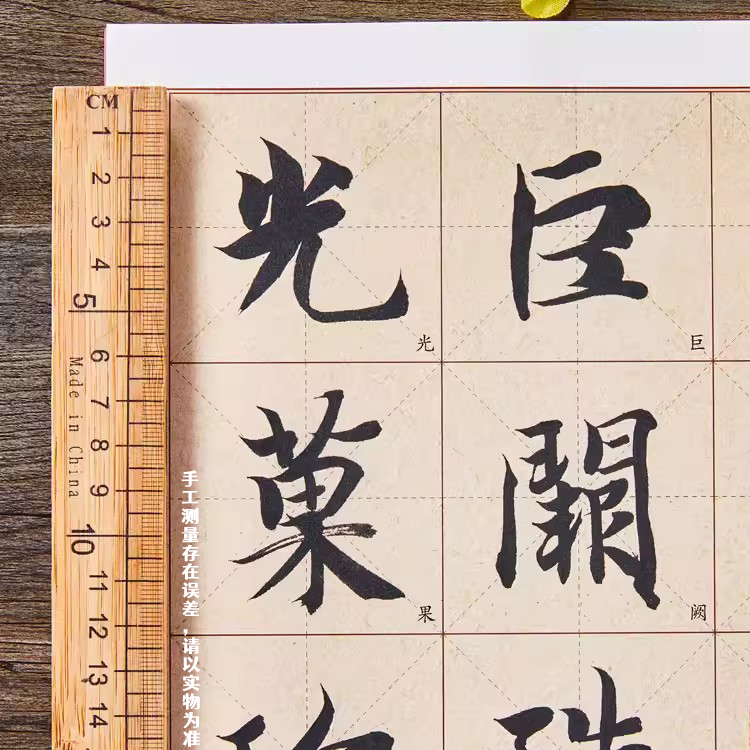 CM
1 2 3 4 5 6 7 8 9 10 11 12 13 14
Made in China
手工测量存在误差，请以实物为准
巨闕
巨
阙
光菓
光
果